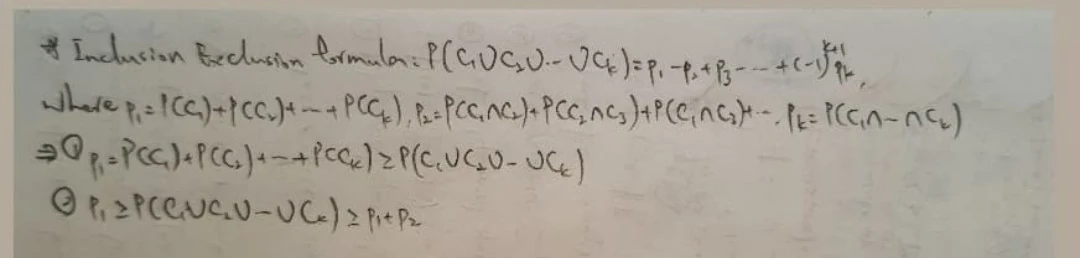 * Inclusion Exclusion formula: P(C₁∪C₂∪--∪Cₖ)=p₁-p₂+p₃----+(-1)ᵏ⁺¹pₖ,
where p₁=P(C₁)+P(C₂)+--+P(Cₖ), p₂=P(C₁∩C₂)+P(C₂∩C₃)+P(C₁∩C₃)+--, pₖ=P(C₁∩-∩Cₖ)
⇒① p₁=P(C₁)+P(C₂)+--+P(Cₖ)≥P(C₁∪C₂∪-∪Cₖ)
② p₁≥P(C₁∪C₂∪-∪Cₖ)≥p₁+p₂